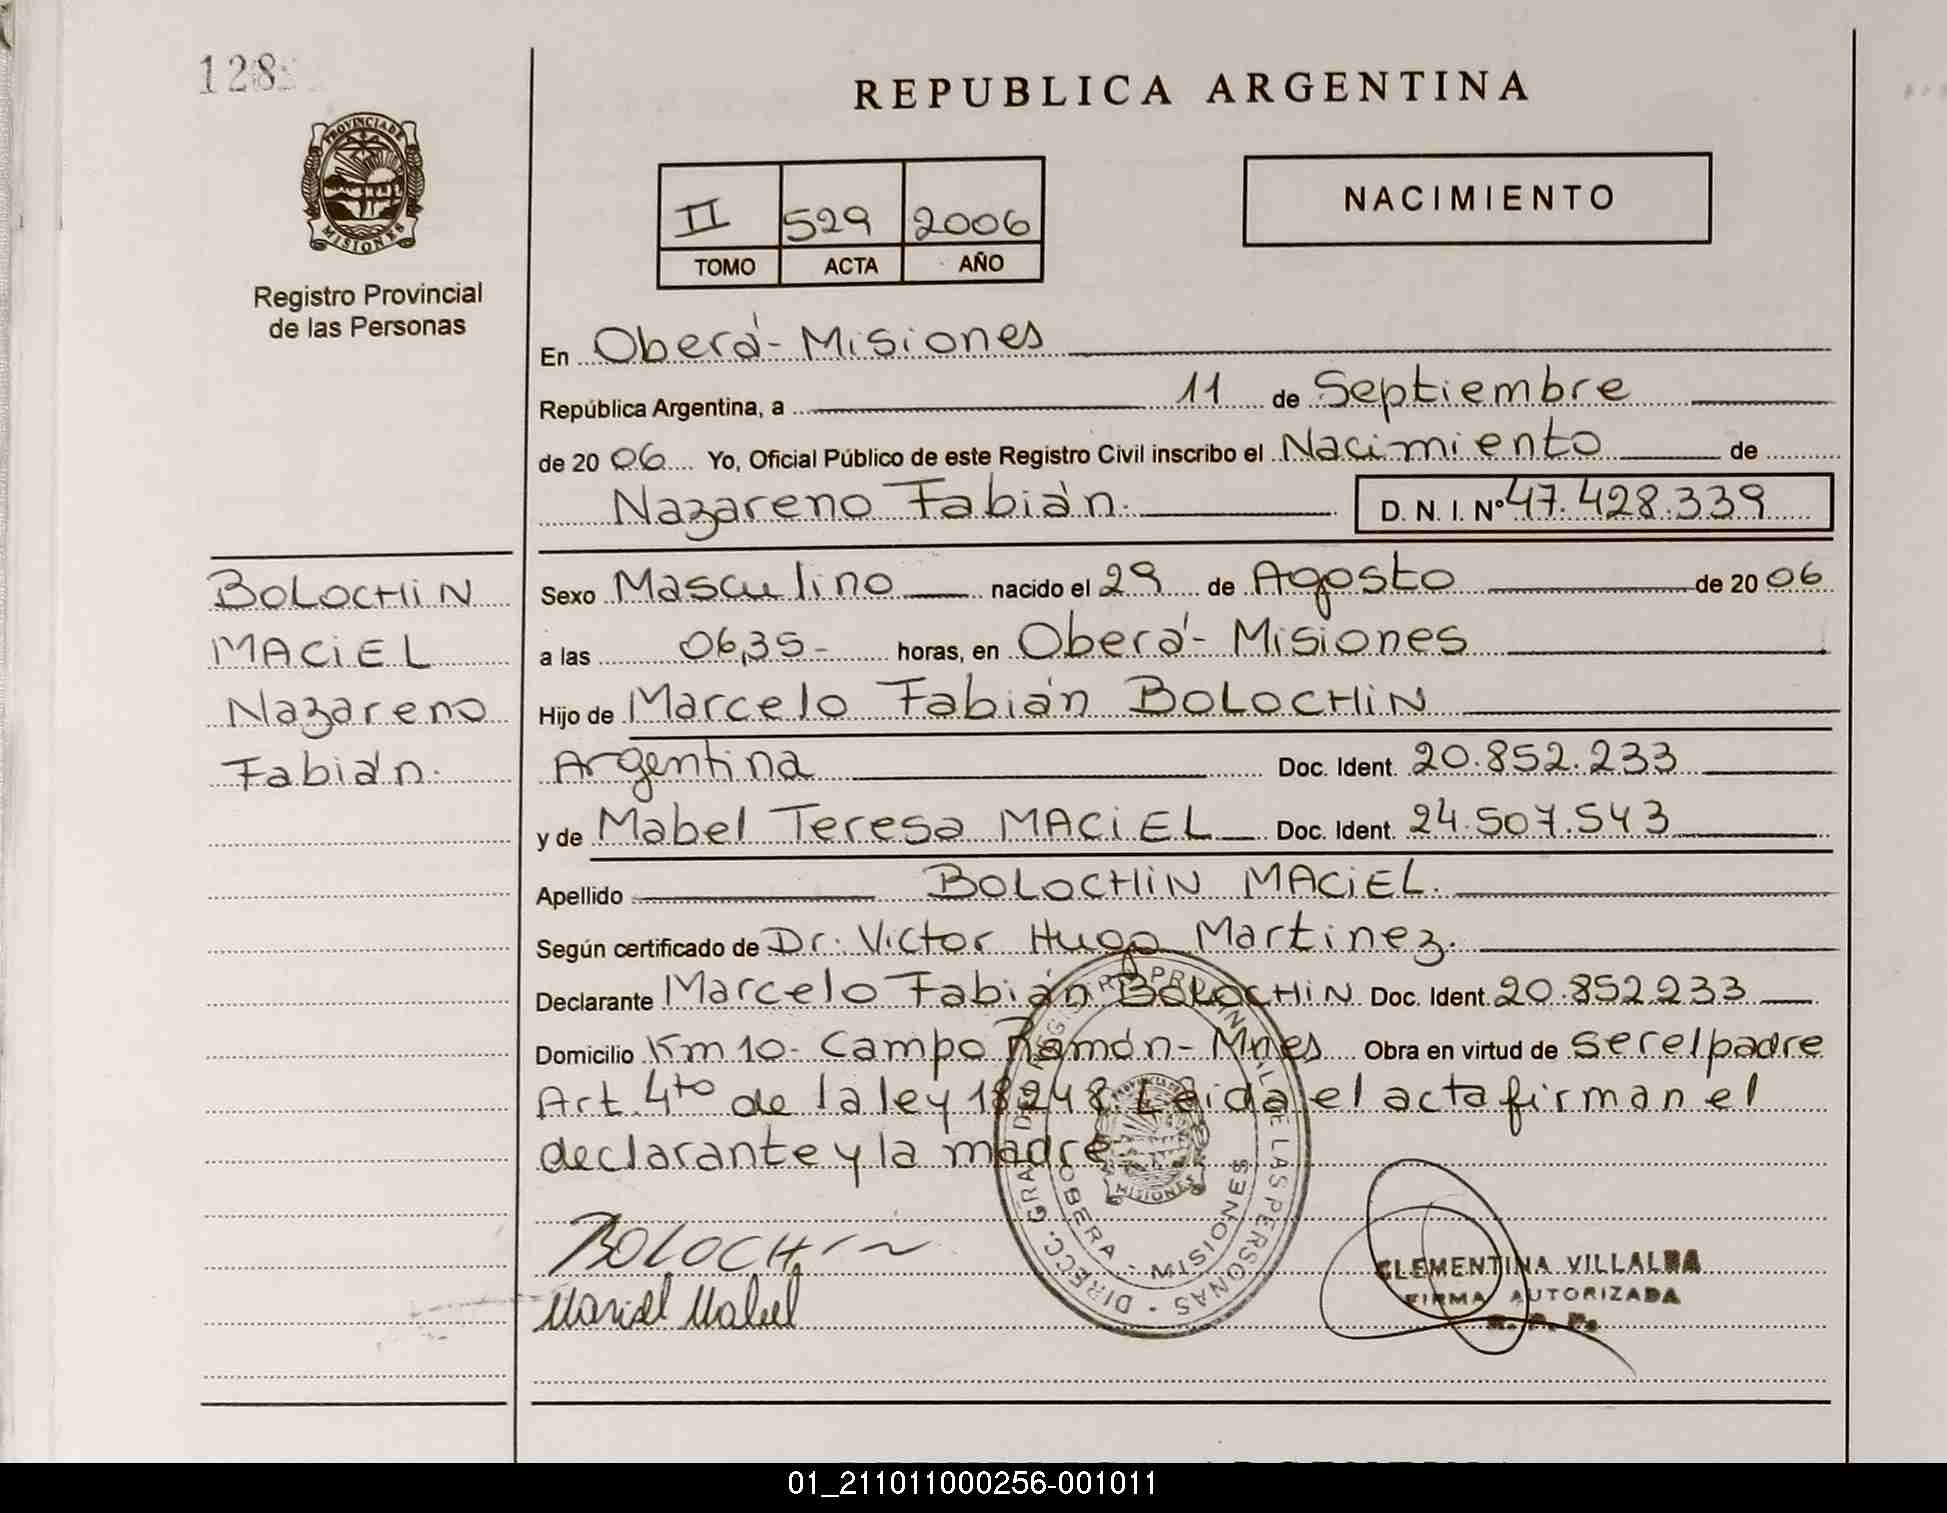 128
PROVINCIA DE
MISIONES
Registro Provincial
de las Personas
REPUBLICA ARGENTINA
II 529 2006
TOMO ACTA AÑO
NACIMIENTO
En Oberá - Misiones
República Argentina, a 11 de Septiembre
de 20 06 Yo, Oficial Público de este Registro Civil inscribo el Nacimiento de
Nazareno Fabián. D. N. I. Nº 47.428.339
BOLOCHIN
MACIEL
Nazareno
Fabián.
Sexo Masculino nacido el 29 de Agosto de 20 06
a las 06,35- horas, en Oberá - Misiones
Hijo de Marcelo Fabián BOLOCHIN
Argentina Doc. Ident. 20.852.233
y de Mabel Teresa MACIEL Doc. Ident. 24.507.543
Apellido BOLOCHIN MACIEL.
Según certificado de Dr. Victor Hugo Martinez.
Declarante Marcelo Fabián BOLOCHIN Doc. Ident. 20.852.233
Domicilio Km 10- Campo Ramón - Mnes Obra en virtud de ser el padre
Art. 4to de la ley 18248. Leida el acta firman el
declarante y la madre
DIRECC. GRAL. DEL REGISTRO PROVINCIAL DE LAS PERSONAS
OBERA - MISIONES
PROVINCIA DE
MISIONES
BOLOCHIN
Maciel Mabel
CLEMENTINA VILLALBA
FIRMA AUTORIZADA
R. P. P.
01_211011000256-001011